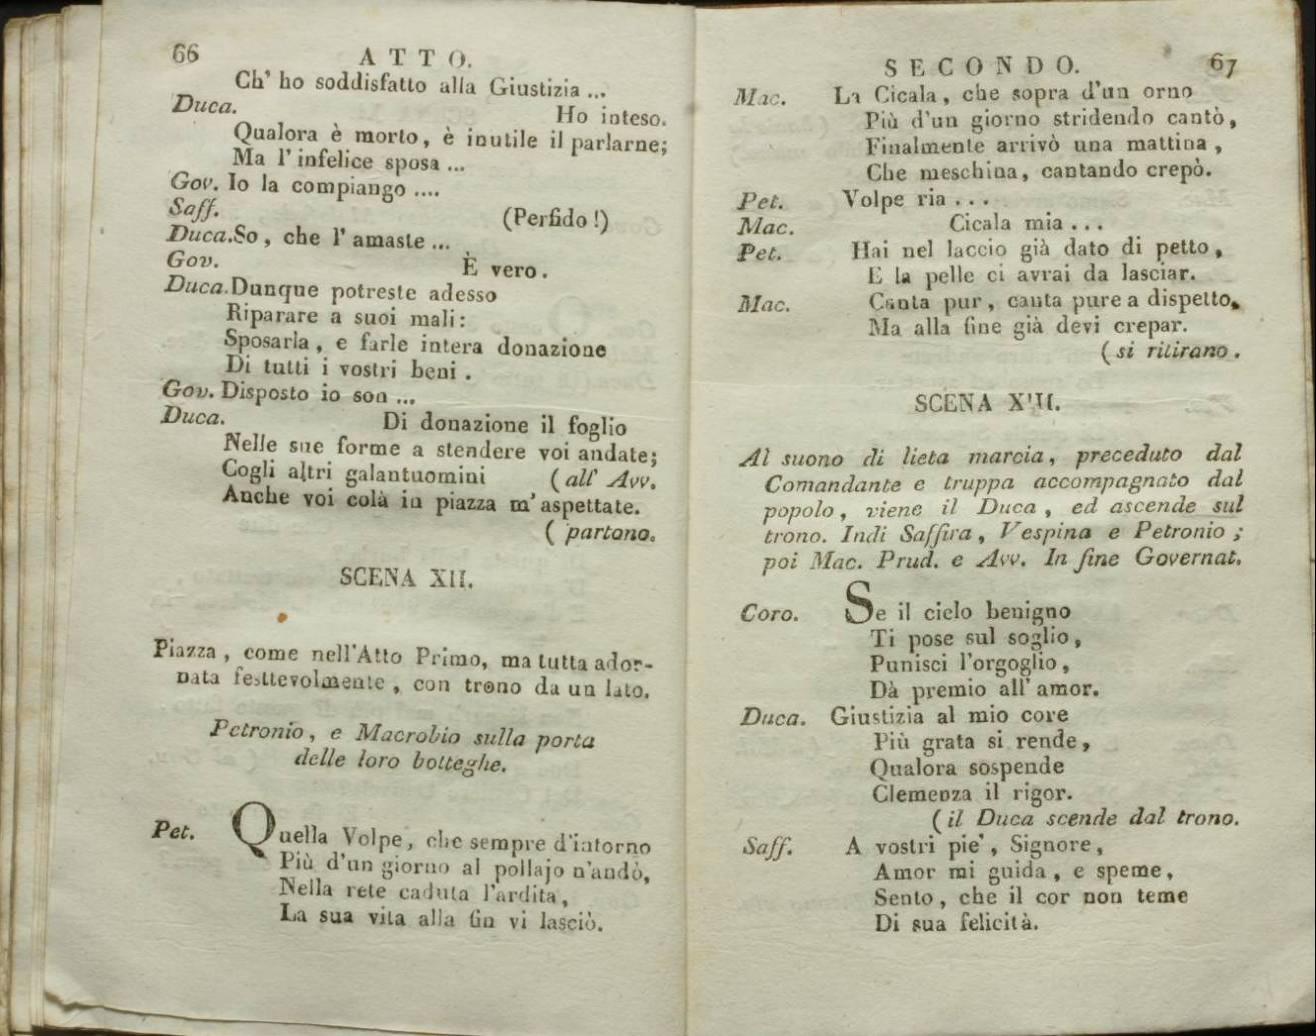 66
ATTO.
Ch' ho soddisfatto alla Giustizia ...
Duca. Ho inteso.
Qualora è morto, è inutile il parlarne;
Ma l' infelice sposa ...
Gov. Io la compiango ....
Saff. (Perfido!)
Duca. So, che l' amaste ...
Gov. È vero.
Duca. Dunque potreste adesso
Riparare a suoi mali:
Sposarla, e farle intera donazione
Di tutti i vostri beni.
Gov. Disposto io son ...
Duca. Di donazione il foglio
Nelle sue forme a stendere voi andate;
Cogli altri galantuomini (all' Avv.
Anche voi colà in piazza m' aspettate.
( partono.
SCENA XII.
Piazza, come nell'Atto Primo, ma tutta ador-
nata festtevolmente, con trono da un lato.
Petronio, e Macrobio sulla porta
delle loro botteghe.
Pet. Quella Volpe, che sempre d'intorno
Più d'un giorno al pollajo n'andò,
Nella rete caduta l'ardita,
La sua vita alla fin vi lasciò.
SECONDO.
67
Mac. La Cicala, che sopra d'un orno
Più d'un giorno stridendo cantò,
Finalmente arrivò una mattina,
Che meschina, cantando crepò.
Pet. Volpe ria . . .
Mac. Cicala mia . . .
Pet. Hai nel laccio già dato di petto,
E la pelle ci avrai da lasciar.
Mac. Canta pur, canta pure a dispetto,
Ma alla fine già devi crepar.
( si ritirano.
SCENA XIII.
Al suono di lieta marcia, preceduto dal
Comandante e truppa accompagnato dal
popolo, viene il Duca, ed ascende sul
trono. Indi Saffira, Vespina e Petronio;
poi Mac. Prud. e Avv. In fine Governat.
Coro. Se il cielo benigno
Ti pose sul soglio,
Punisci l'orgoglio,
Dà premio all' amor.
Duca. Giustizia al mio core
Più grata si rende,
Qualora sospende
Clemenza il rigor.
( il Duca scende dal trono.
Saff. A vostri pie', Signore,
Amor mi guida, e speme,
Sento, che il cor non teme
Di sua felicità.